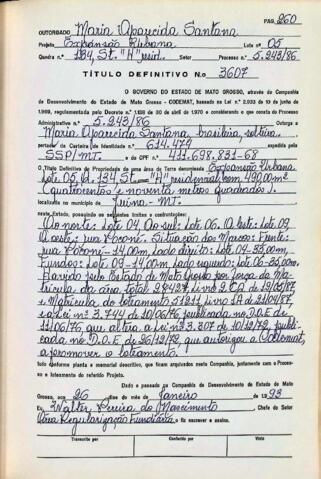 PÁG. 260
OUTORGADO Maria Aparecida Santana
Projeto Expansão Urbana Lote nº 05
Quadra n.º 134, St. "H" resid. Setor Processo n.º 5.243/86
TÍTULO DEFINITIVO N.o 3607
O GOVERNO DO ESTADO DE MATO GROSSO, através da Companhia
de Desenvolvimento do Estado de Mato Grosso - CODEMAT, baseado na Lei n.º 2.933 de 10 de junho de
1969, regulamentada pelo Decreto n.º 1.138 de 30 de abril de 1970 e considerando o que consta do Processo
Administrativo n.º 5.243/86 Outorga a
Maria Aparecida Santana, brasileira, solteira,
portador da Carteira de Identidade n.º 614.479 expedida pela
SSP/MT. e do CPF n.º 411.698.831-68
O Título Definitivo de Propriedade de uma área de Terra denominada Expansão Urbana
Lote 05, Qd. 134, St. "H" residencial, com 490,00m²
(quatrocentos e noventa metros quadrados).
localizada no município de Juína - MT.
neste Estado, possuindo os seguintes limites e confrontações:
Ao norte: Lote 04. Ao sul: Lote 06. A leste: Lote 09.
A oeste: rua Poconé. Situação dos Marcos: Frente:
rua Poconé - 14,00m, Lado direito: Lote 04 - 35,00m,
Fundos: Lote 09 - 14,00m, Lado esquerdo: Lote 06 - 35,00m.
Havida pelo Estado de Mato Grosso por força da Ma-
trícula da área total 28427 livro 2 CA de 19/05/87
e Matrícula do loteamento 51211 livro 1A de 21/04/87,
e a Lei nº 3.744 de 10/06/76, publicada no D.O.E de
11/06/76, que altera a Lei nº 3.307 de 10/12/72, publi-
cada no D.O.E. de 26/12/72, que autorizou a Codemat,
a promover o loteamento.
tudo conforme planta e memorial descritivo, que ficam arquivados nesta Companhia, juntamente com o Pro-
cesso e loteamento do referido Projeto.
Dado e passado na Companhia de Desenvolvimento do Estado de Mato
Grosso, aos 26 dias do mês de Janeiro de 1.993
Eu, Walter Pereira do Nascimento Chefe do Setor
Para Regularização Fundiária o fiz escrever e assino.
Transcrito por Conferido por Visto